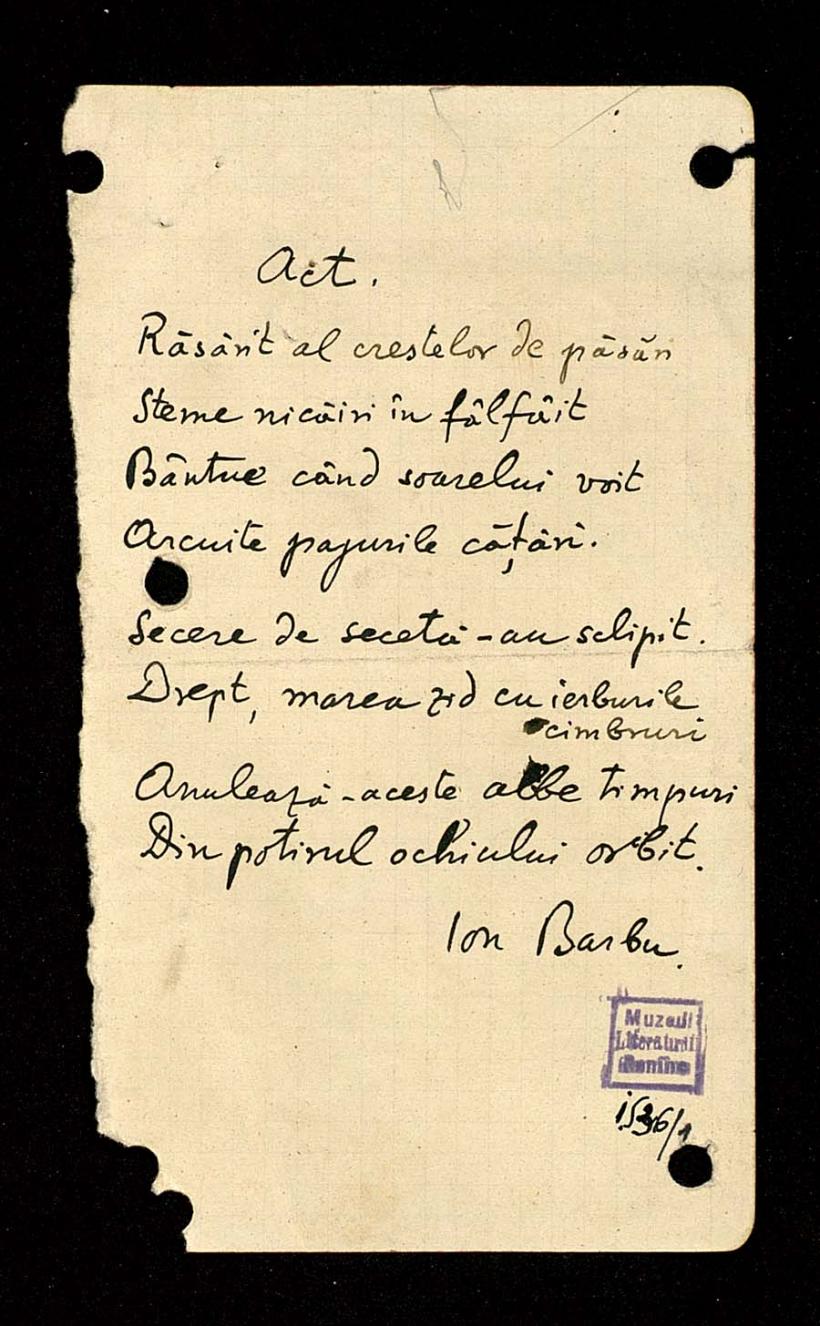 Act.
Răsărit al crestelor de păsări
Steme nicăiri în fâlfâit
Bântue când soarelui voit
Arcuite pajurile cățări.
Secere de secetă-au sclipit.
Drept, marea zid cu ierburile
cimbruri
Anulează-aceste albe timpuri
Din potirul ochiului orbit.
Ion Barbu.
Muzeul
Literaturii
Române